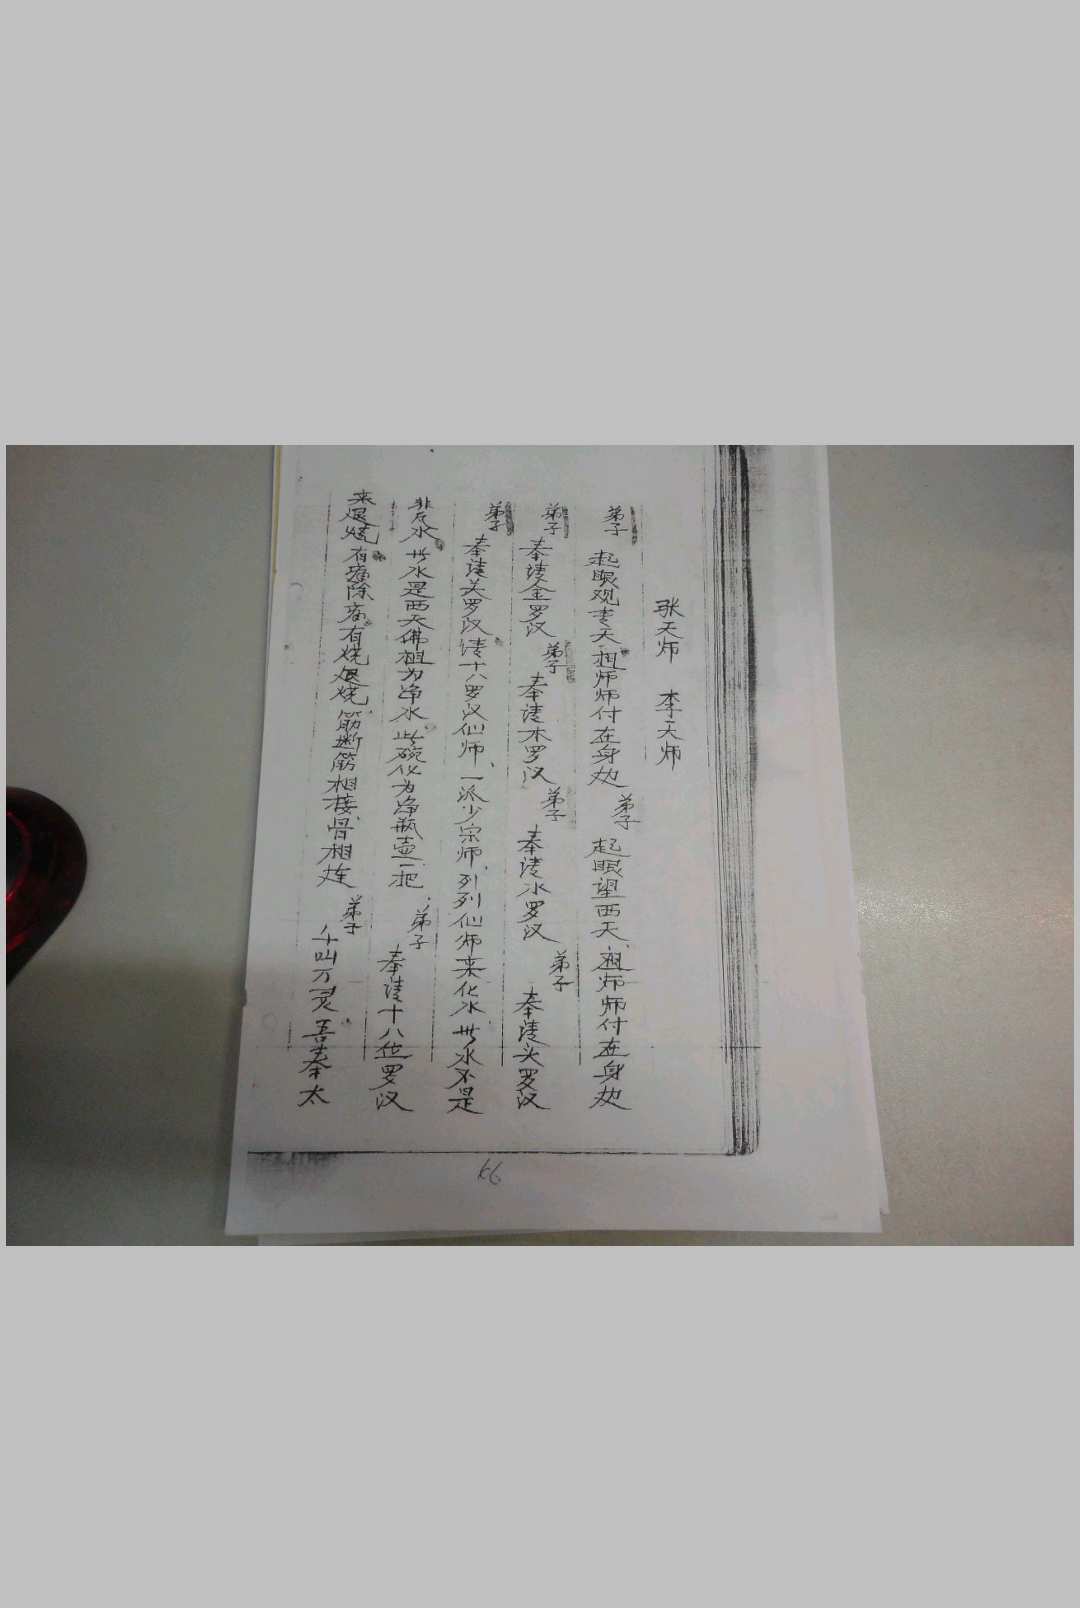 张天师 李天师
弟子 起眼观青天 祖师师付在身边 弟子 起眼望西天 祖师师付在身边
弟子 奉请金罗汉 弟子 奉请木罗汉 弟子 奉请水罗汉 弟子 奉请头罗汉
弟子 奉请关罗汉 请十八罗汉仙师、一派少宗师 列列仙师来化水 此水不是
非凡水 此水是西天佛祖为净水 此碗化为净瓶壶一把 弟子 奉请十八位罗汉
来退烧 有痛除痛 有烧退烧 筋断筋相接 骨相连 弟子 千叫万灵 吾奉太
66